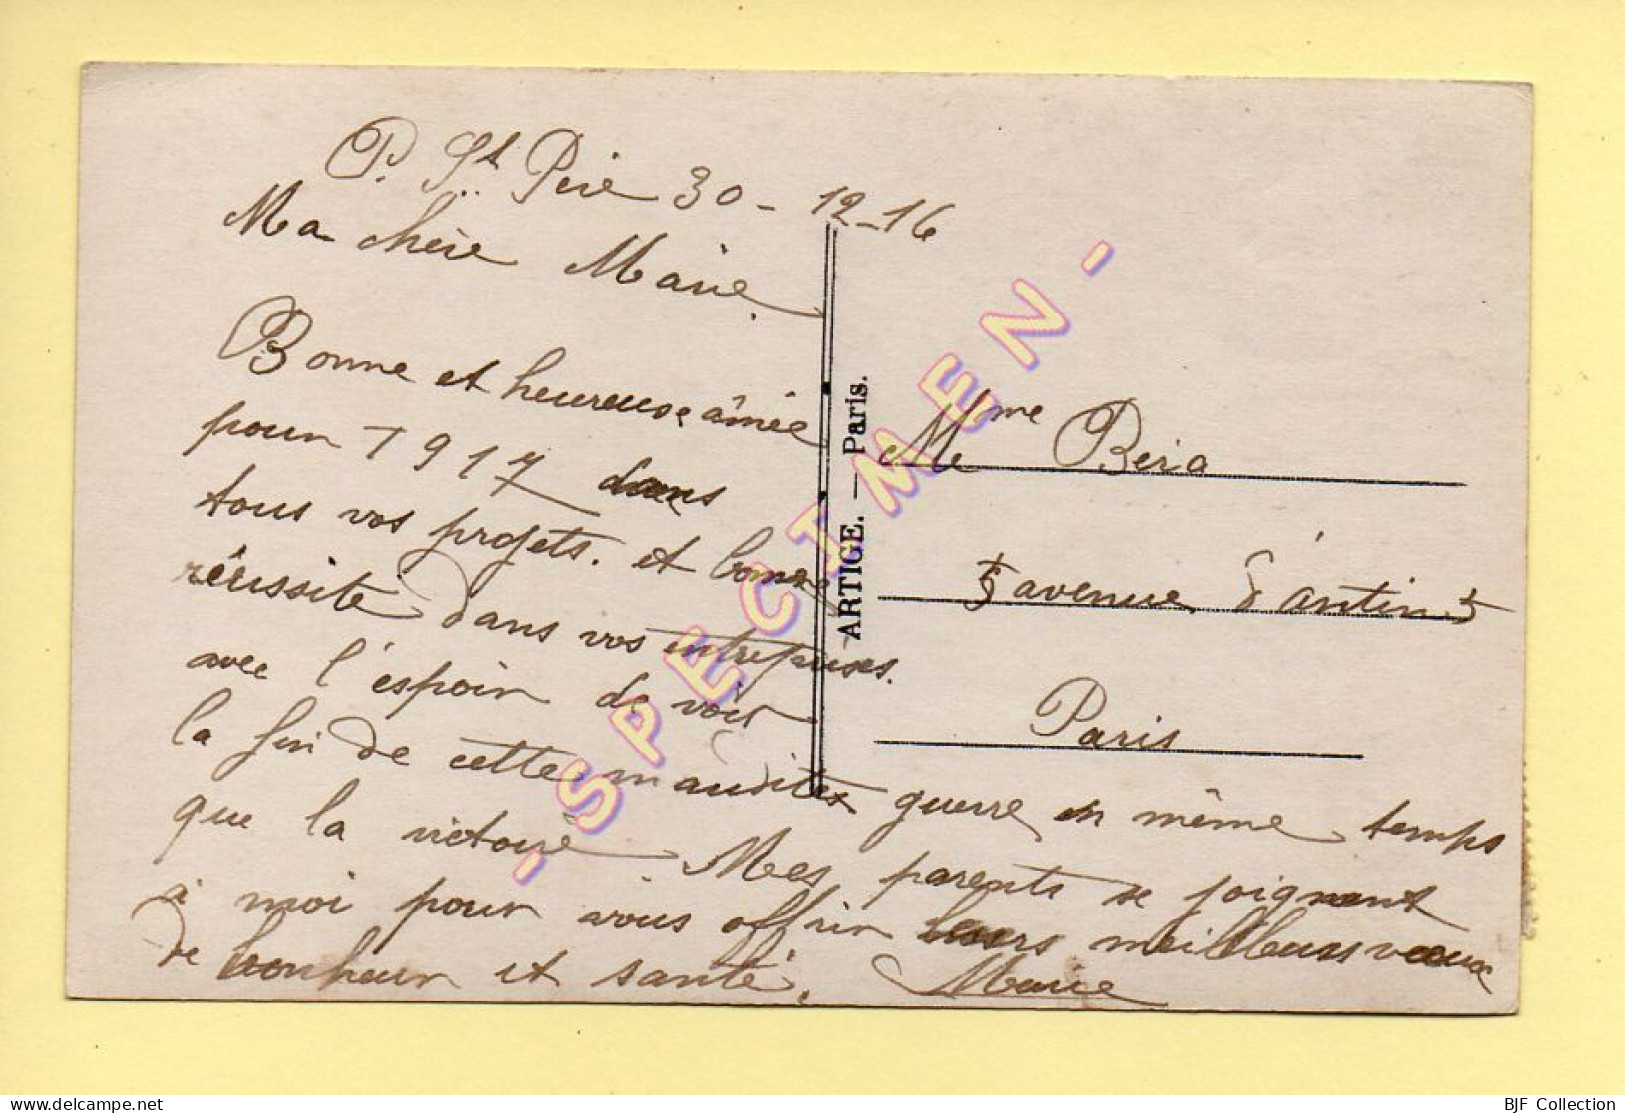 P. St Père 30-12-16
Ma chère Marie
Bonne et heureuse année
pour 1917 dans
tous vos projets. et bonne
réussite dans vos entreprises.
avec l'espoir de voir
la fin de cette maudites guerre en même temps
que la victoire Mes parents se joignent
à moi pour vous offrir leurs meilleurs voeux
de bonheur et santé. Marie
Mme Béra
5 avenue d'Antin 5
Paris
ARTIGE. — Paris.
- SPECIMEN -
BJF Collection